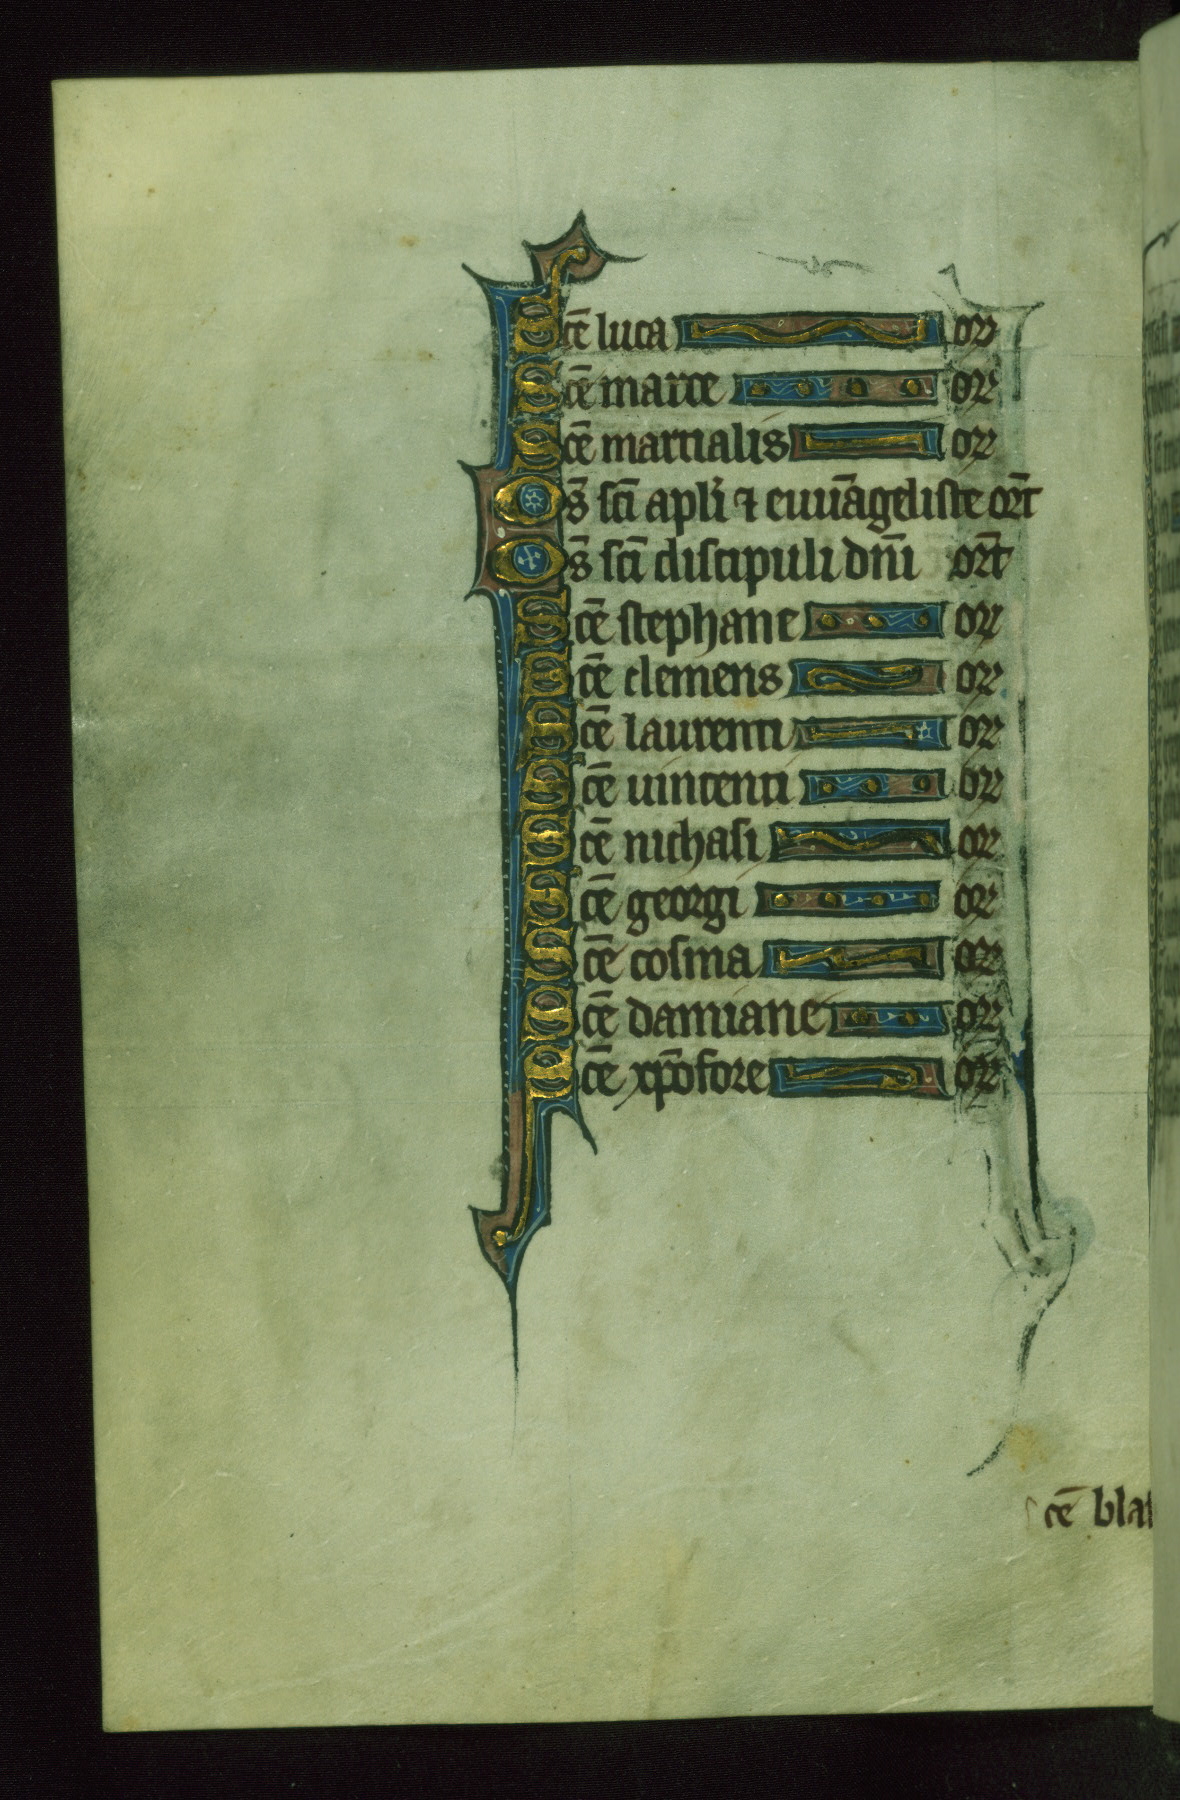 Sc̄e luca or̄
Sc̄e marce or̄
Sc̄e martialis or̄
Om̄s sc̄i apl̄i ⁊ euuāgeliste or̄t
Om̄s sc̄i discipuli dn̄i or̄t
Sc̄e stephane or̄
Sc̄e clemens or̄
Sc̄e laurenti or̄
Sc̄e uincenti or̄
Sc̄e nichasi or̄
Sc̄e georgi or̄
Sc̄e cosma or̄
Sc̄e damiane or̄
Sc̄e xp̄ofore or̄
sc̄e blas